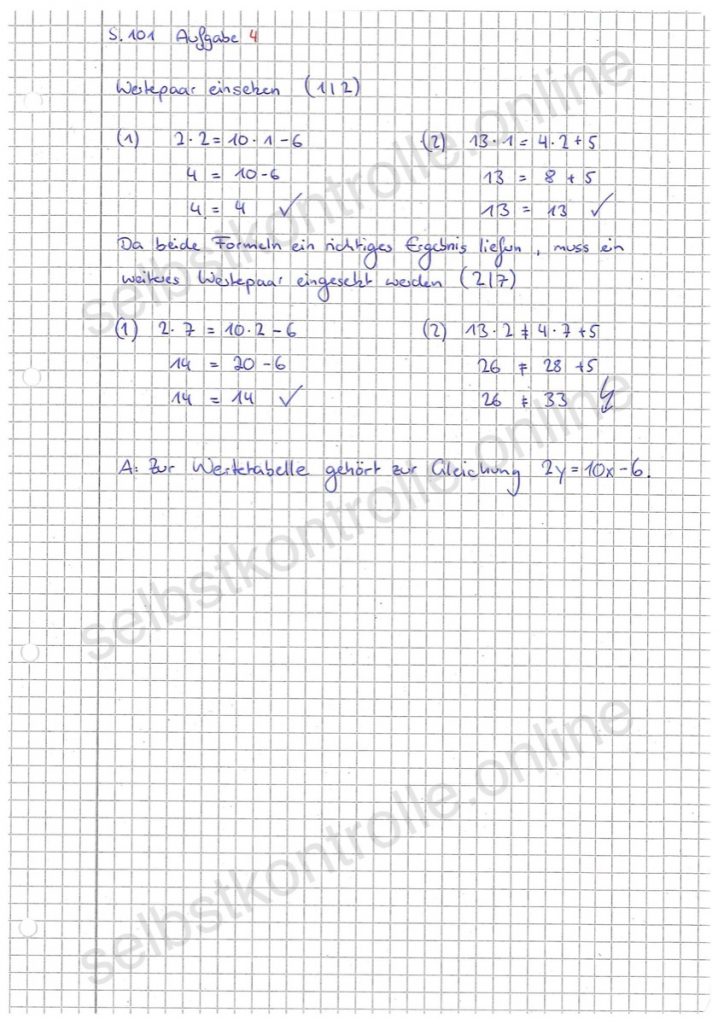 S. 101 Aufgabe 4
Wertepaar einsetzen (1|2)
(1) 2·2 = 10·1 - 6 (2) 13·1 = 4·2 + 5
4 = 10 - 6 13 = 8 + 5
4 = 4 ✓ 13 = 13 ✓
Da beide Formeln ein richtiges Ergebnis liefern, muss ein
weiteres Wertepaar eingesetzt werden (2|7)
(1) 2·7 = 10·2 - 6 (2) 13·2 ≠ 4·7 + 5
14 = 20 - 6 26 ≠ 28 + 5
14 = 14 ✓ 26 ≠ 33 ↯
A: Zur Wertetabelle gehört zur Gleichung 2y = 10x - 6.
selbstkontrolle.online
selbstkontrolle.online
selbstkontrolle.online